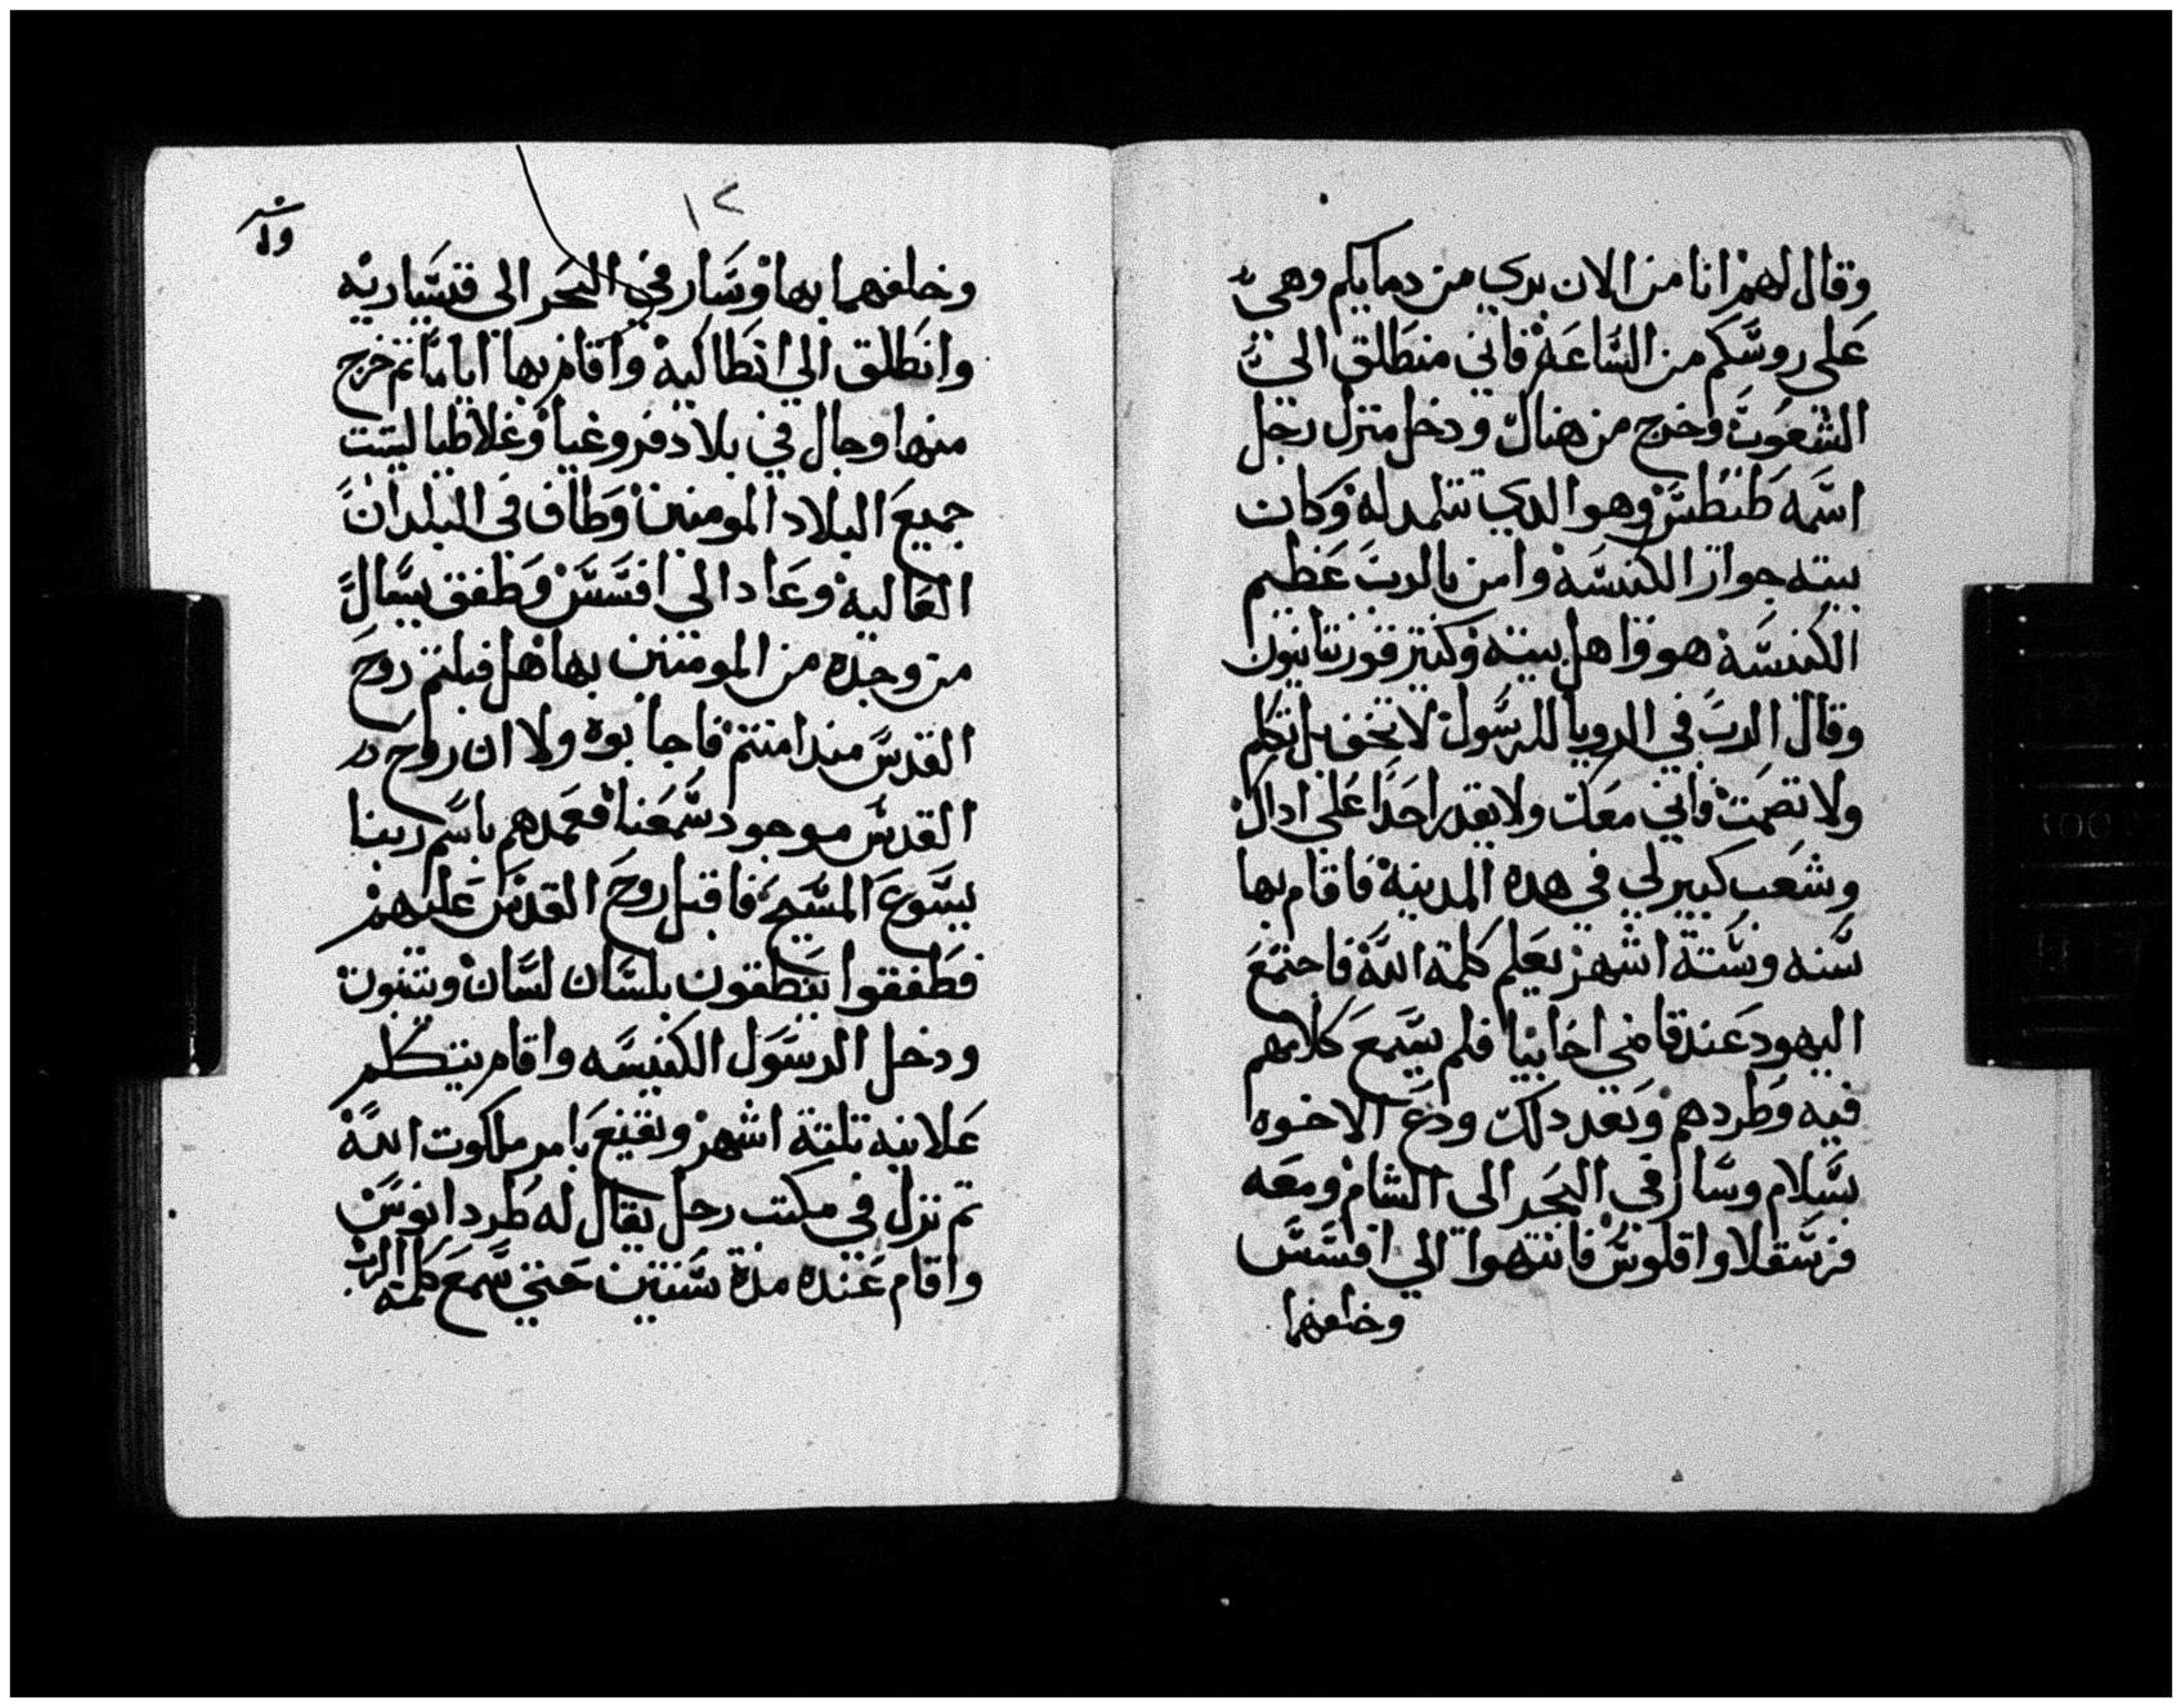 وقال لهم انا من الان بري من دمايكم وهي
على روسكم من الساعة فاني منطلق الي
الشعوب وخرج من هناك ودخل منزل رجل
اسمه طيطس وهو الدي تتلمد له وكان
بيته جوار الكنيسة وامن بالرب عظيم
الكنيسة هو واهل بيته وكتير قورنتانيون
وقال الرب في الرويا للرسول لا تخف بل تكلم
ولا تصمت فاني معك ولا يقدر احدا على ادال
وشعب كبير لي في هده المدينة فاقام بها
سنه وستة اشهر يعلم كلمة الله فاجتمع
اليهود عند قاضي اخاييا فلم يسمع كلامهم
فيه وطردهم وبعد دلك ودع الاخوه
بسلام وسار في البحر الى الشام ومعه
فرسقلا واقلوس فانتهوا الي افسس
وخلفهما
١٢
وخلفهما بها وسار في البحر الى قيساريه
وانطلق الي انطاكية واقام بها اياما تم خرج
منها وجال في بلاد فروغيا وغلاطيا ليتبت
جميع البلاد المومنين وطاف في البلدان
العالية وعاد الى افسس وطفق يسال
من وجده من المومنين بها هل قبلتم روح
القدس مند امنتم فاجابوه ولا ان روح
القدس موجود سمعنا فعمدهم باسم ربنا
يسوع المسيح فاقبل روح القدس عليهم
فطفقوا ينطقون بلسان لسان ويتنبون
ودخل الرسول الكنيسه واقام يتكلم
علانيه تلتة اشهر ويقنع بامر ملكوت الله
تم نزل في مكتب رجل يقال له طردانوس
واقام عنده مدة سنتين حتي سمع كلمة الرب